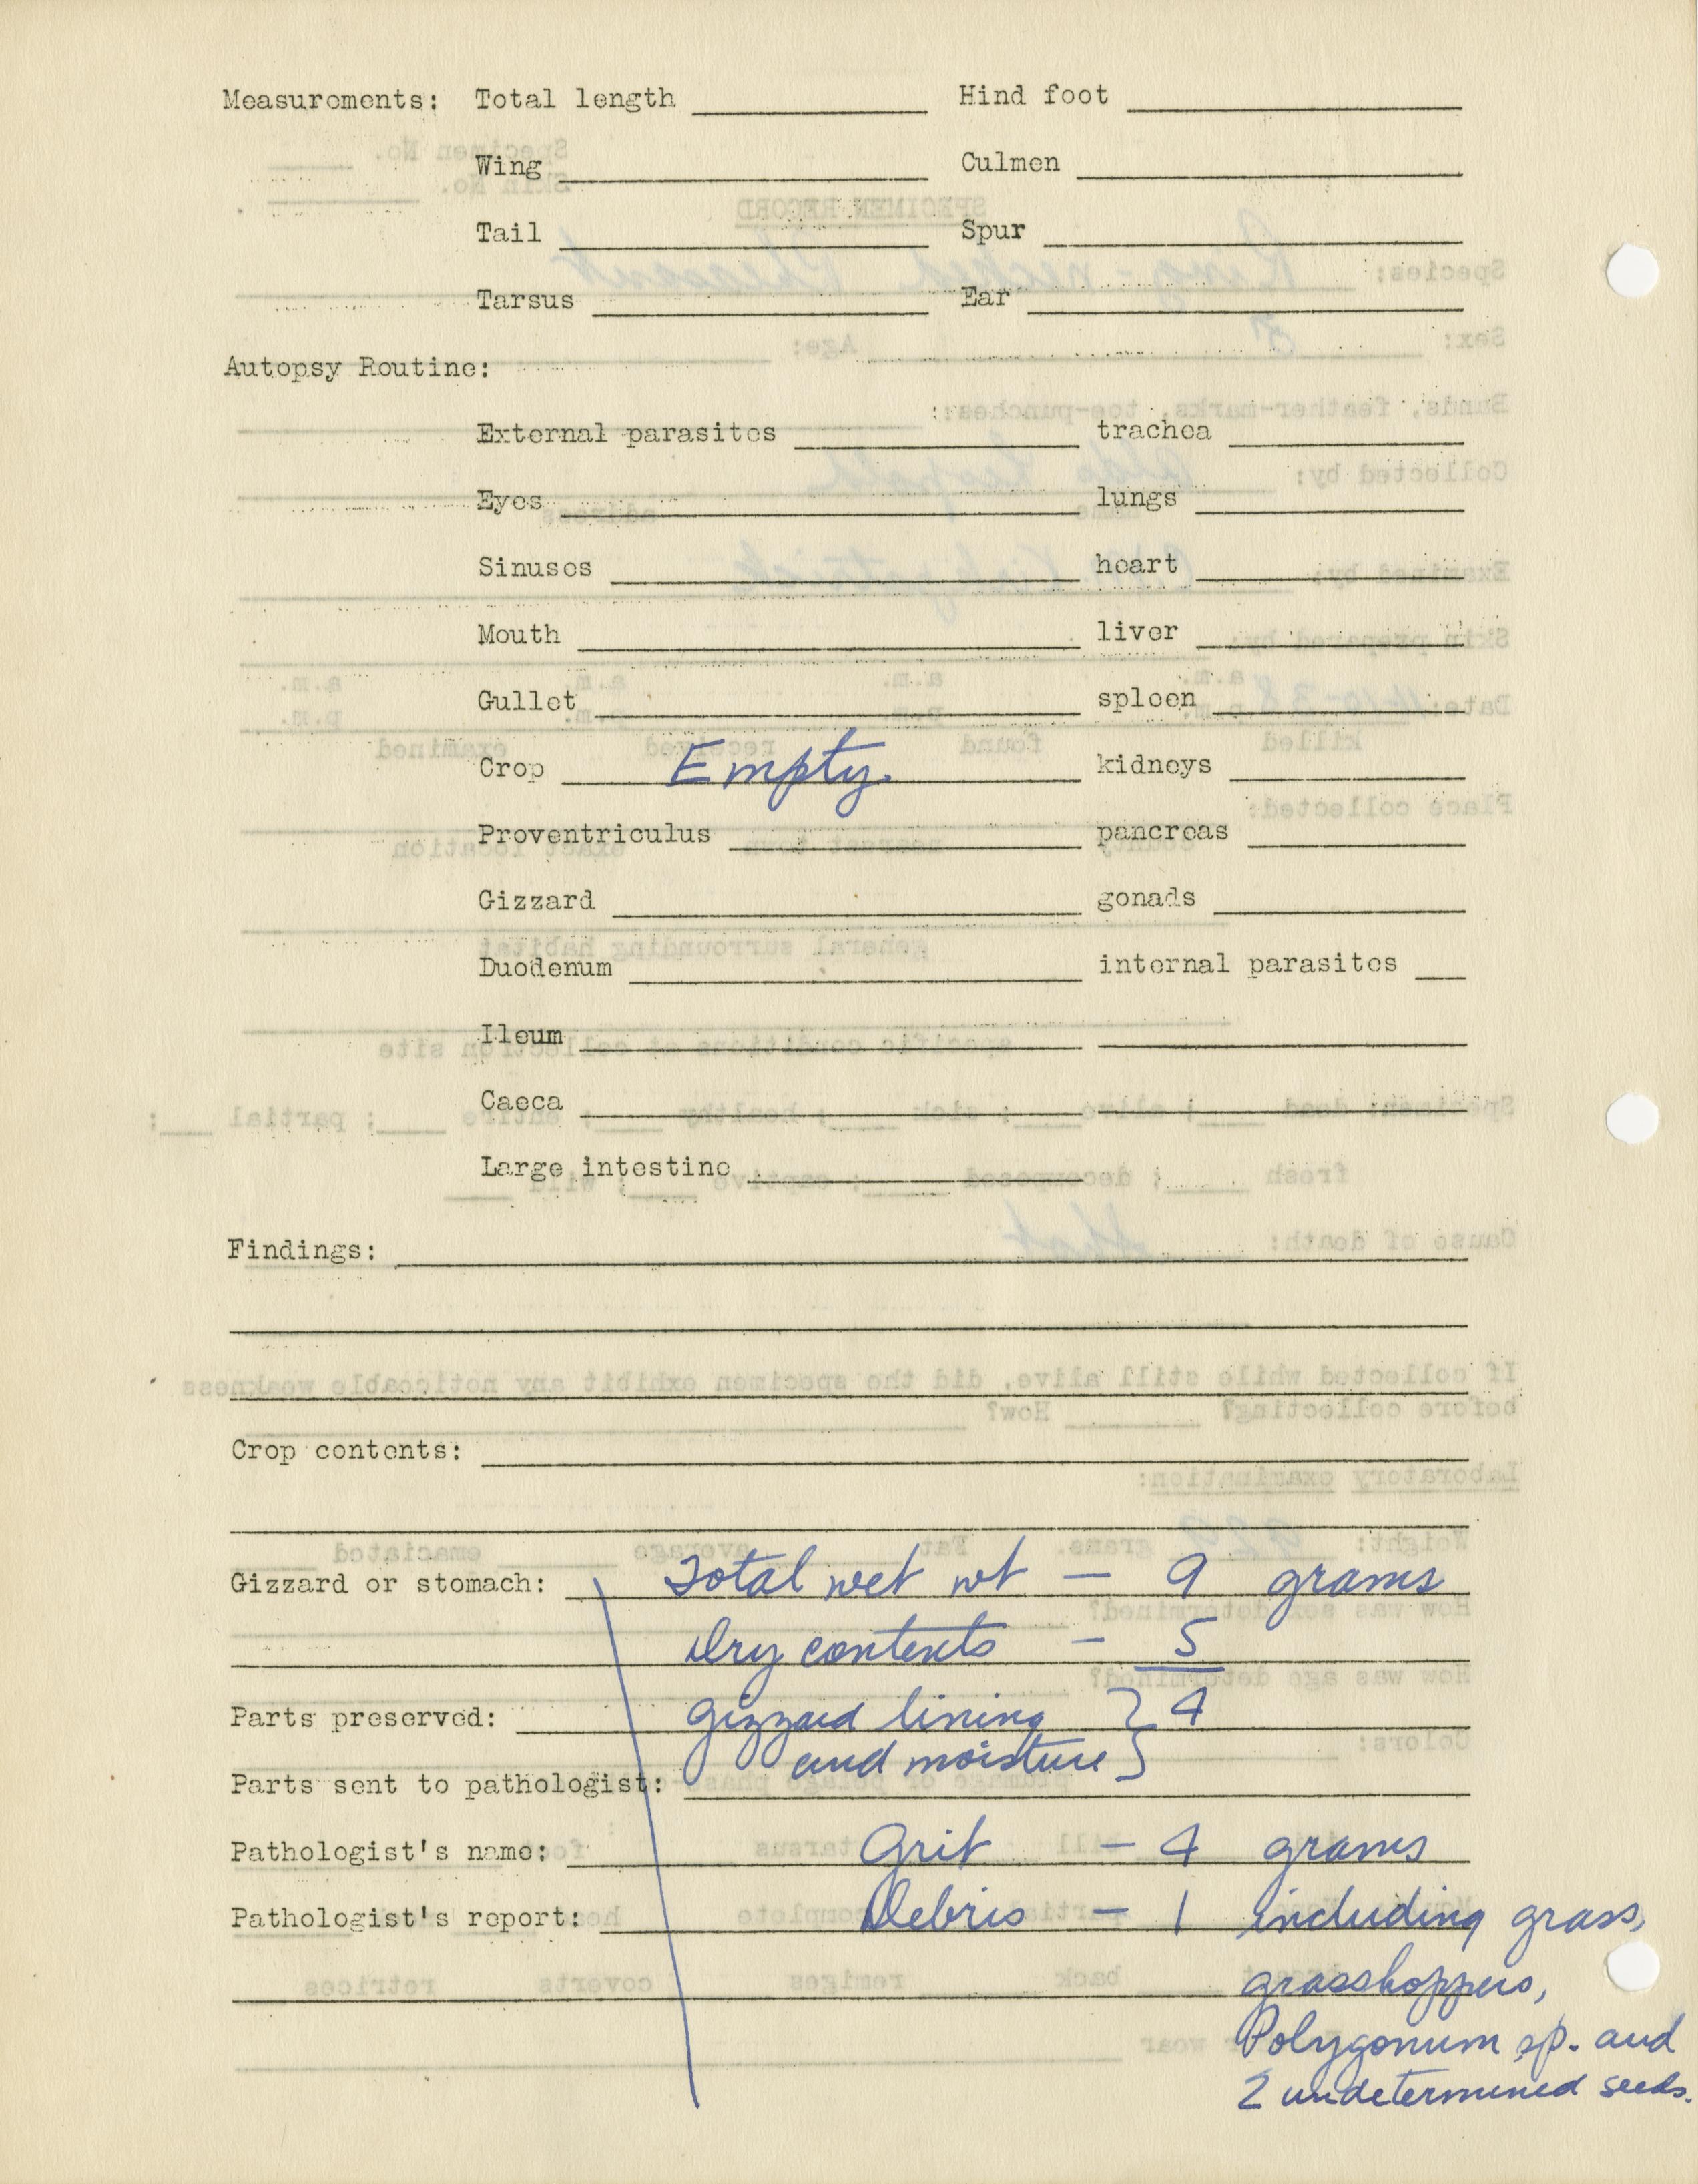 Measurements: Total length Hind foot
Wing Culmen
Tail Spur
Tarsus Ear
Autopsy Routine:
External parasites trachea
Eyes lungs
Sinuses heart
Mouth liver
Gullet spleen
Crop Empty. kidneys
Proventriculus pancreas
Gizzard gonads
Duodenum internal parasites
Ileum
Caeca
Large intestine
Findings:
Crop contents:
Gizzard or stomach: Total wet wt — 9 grams
Dry contents — 5
Parts preserved: Gizzard lining } 4
and moisture
Parts sent to pathologist:
Pathologist's name: Grit — 4 grams
Pathologist's report: Debris — 1 including grass,
grasshoppers,
Polygonum sp. and
2 undetermined seeds.